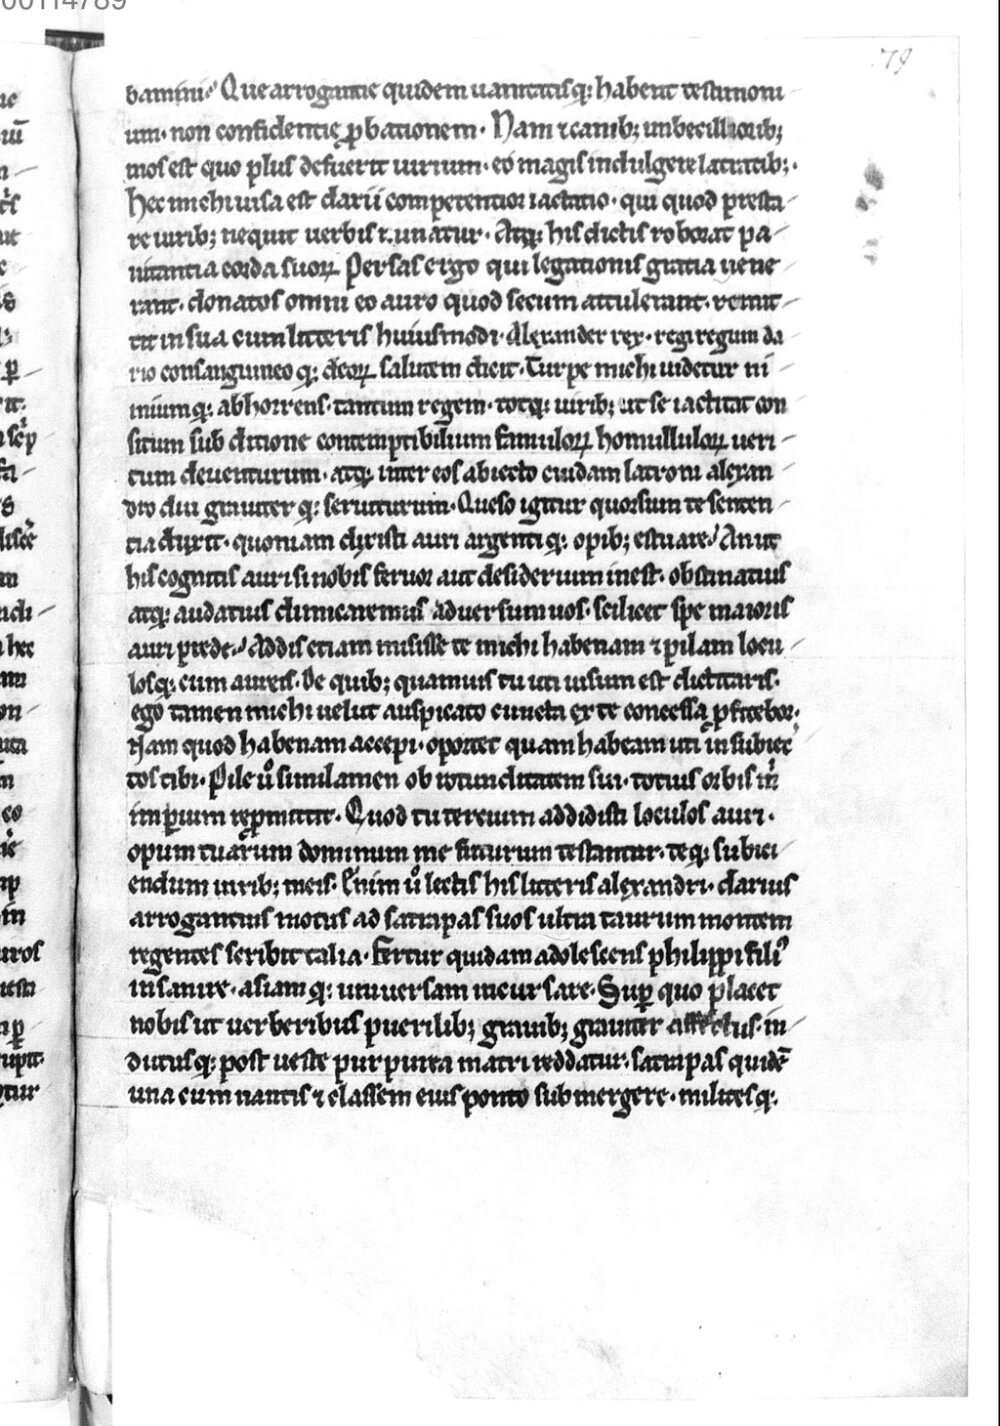 00114789
79
bamini. Que arrogantie quidem uanitatisq; habent testimoni
um. non confidentię ꝓbationem. Nam ⁊ canib; imbecillioribꝫ
mos est quo plus defuerit uirium. eo magis indulgere latratib;.
hec michi uisa est darii competentior iactatio. qui quod presta
re uirib; nequit uerbis
Atq; his dictis roborat pa
uitantia corda suoꝝ. Persas ergo qui legationis gratia uene
rant. donatos omni eo auro quod secum attulerant. remit
tit in sua cum litteris huiusmodi. Alexander rex. regi regum da
rio consanguineo q; deoꝝ salutem dicit. Turpe michi uidetur ni
miumq; abhorrens. tantum regem. totq; uirib; ut se iactitat con
situm sub ditione contemptibilium famuloꝝ homulluloꝝ ueri
tum deuenturum. atq; inter eos abiecto cuidam latroni alexan
dro diu grauiter q; seruiturum. Queso igitur quorsum te senten
tia duxit. quoniam dixisti auri argentiq; opib; estuare. An ut
his cognitis auri si nobis feruor aut desiderium inest. obstinatius
atq; audatius dimicaremus aduersum uos. scilicet spe maioris
auri prede. Addis etiam misisse te michi habenam ⁊ pilam locu
losq; cum aureis. De quib; quamuis tu uti uisum est dictitaris.
ego tamen michi uelut auspicato cuncta ex te concessa ꝓfitebor.
Nam quod habenam accepi. oportet quam habeam uti in subiec
tos tibi. Pile u͛o similamen ob rotunditatem sui. totius orbis in͛
imꝑium reꝓmittit. Quod tu tercium addidisti loculos auri.
opum tuarum dominum me futurum testantur. teq; subici
endum uirib; meis. Enim u͛o lectis his litteris alexandri. darius
arrogantius motus ad satrapas suos ultra taurum montem
regentes scribit talia. Fertur quidam adolescens philippi filiꝰ
insanire. asiam q; uniuersam incursare. Suꝑ quo placet
nobis ut uerberibus puerilib; grauib; grauiter
in
dutusq; post ueste purpurea matri reddatur. satrapas quidē
una cum nautis ⁊ classem eius ponto submergere. militesq;